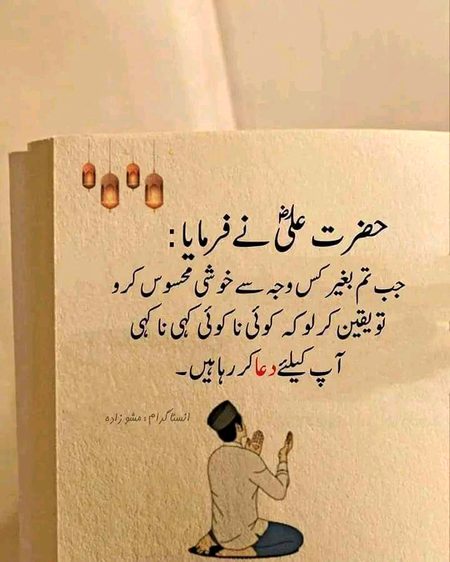 حضرت علیؓ نے فرمایا :
جب تم بغیر کس وجہ سے خوشی محسوس کرو
تو یقین کر لو کہ کوئی نا کوئی کہی نا کہی
آپ کیلئے دعا کر رہا ہیں۔
انسٹاگرام : مشو زادہ